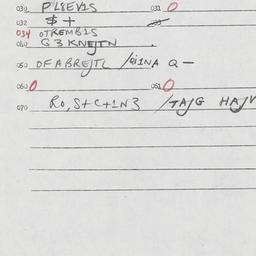 030 PL8EV1S 031 O
032 $ +
034 OTREMB1S
040 G3KNEJTN
050 DFABREJTL /GI1NA Q -
060 O 061 O
070 RO,S+C+1N3 /TAJG HAJV